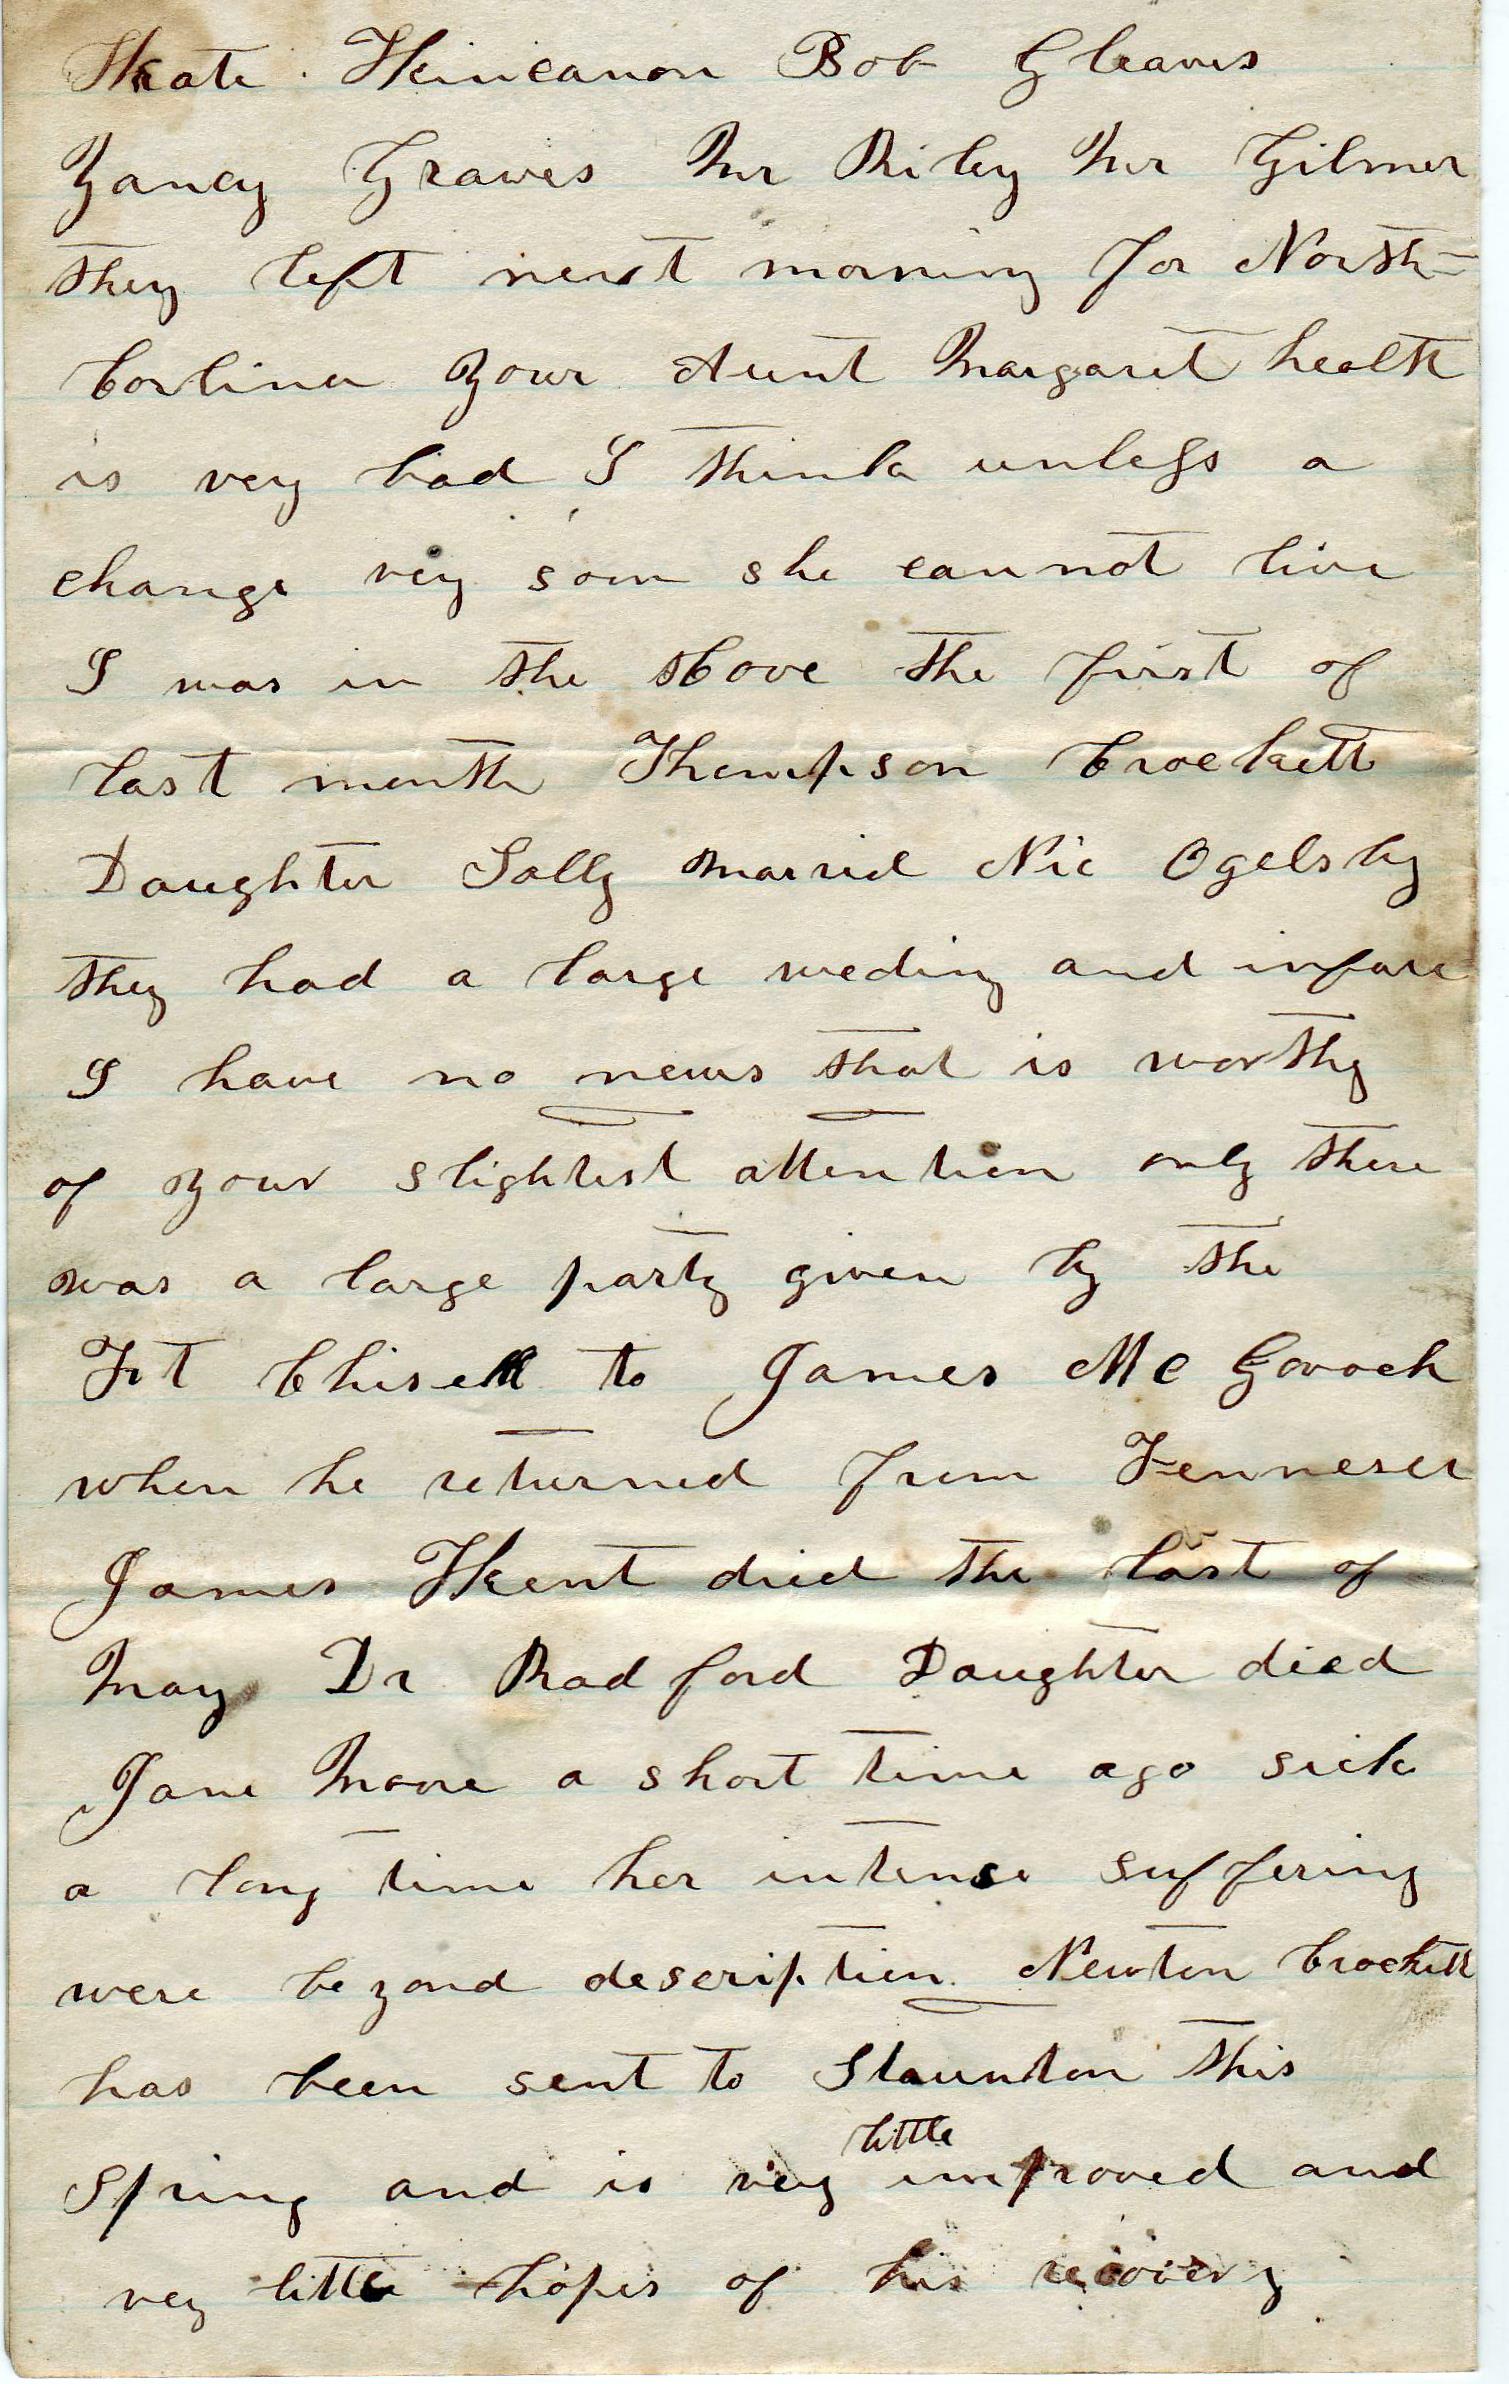 Kate Kincanon Bob Gleaves
Yancy Graves Mr Riley Mr Gilmer
they left next morning for North=
Corlina Your Aunt Margaret health
is very bad I think unless a
change very soon she cannot live
I was in the Cove the first of
last month Thompson Crockett
Daughter Sally Married Nic Ogelsby
they had a large weding and infare
I have no news that is worthy
of your slightest attention only there
was a large party given by the
Ft Chisell to James Mc Gavock
when he returned from Tennesee
James Kent died the last of
May Dr Radford Daughter died
Jane Moore a short time ago sick
a long time her intense suffering
were beyond description Newton Crockett
has been sent to Staunton this
Spring and is very little improved and
very little hopes of his recovery